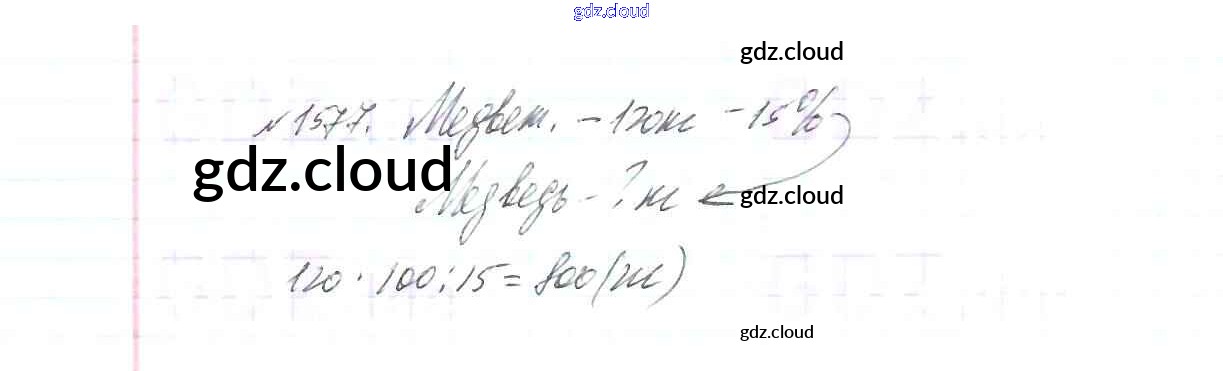 gdz.cloud
gdz.cloud
№1577. Медвеж. - 120 кг - 15%
gdz.cloud
Медведь - ? кг
gdz.cloud
120 · 100 : 15 = 800 (кг)
gdz.cloud